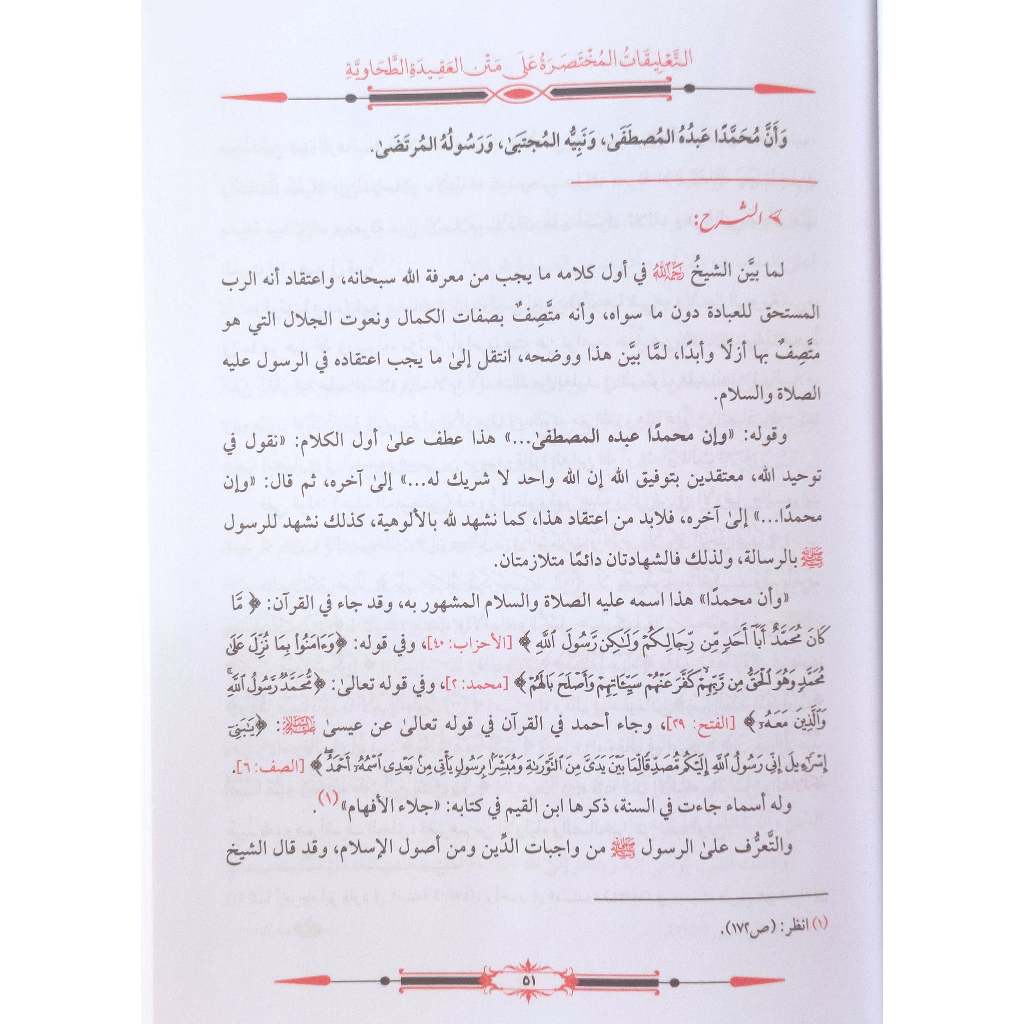 التَّعْلِيقَاتُ المُخْتَصَرَةُ عَلَى مَتْنِ العَقِيدَةِ الطَّحَاوِيَّةِ
وَأَنَّ مُحَمَّدًا عَبْدُهُ المُصطَفَىٰ، وَنَبِيُّه المُجتَبَىٰ، وَرَسُولُهُ المُرتَضَىٰ.
الشرح:
لما بيَّن الشيخُ رَحِمَهُ اللهُ في أول كلامه ما يجب من معرفة الله سبحانه، واعتقاد أنه الرب
المستحق للعبادة دون ما سواه، وأنه متَّصِفٌ بصفات الكمال ونعوت الجلال التي هو
متَّصِفٌ بها أزلًا وأبدًا، لمَّا بيَّن هذا ووضحه، انتقل إلىٰ ما يجب اعتقاده في الرسول عليه
الصلاة والسلام.
وقوله: «وإن محمدًا عبده المصطفىٰ...» هذا عطف علىٰ أول الكلام: «نقول في
توحيد الله، معتقدين بتوفيق الله إن الله واحد لا شريك له...» إلىٰ آخره، ثم قال: «وإن
محمدًا...» إلىٰ آخره، فلابد من اعتقاد هذا، كما نشهد لله بالألوهية، كذلك نشهد للرسول
ﷺ بالرسالة، ولذلك فالشهادتان دائمًا متلازمتان.
«وأن محمدًا» هذا اسمه عليه الصلاة والسلام المشهور به، وقد جاء في القرآن: ﴿ مَّا
كَانَ مُحَمَّدٌ أَبَآ أَحَدٍ مِّن رِّجَالِكُمْ وَلَٰكِن رَّسُولَ ٱللَّهِ ﴾ [الأحزاب: ٤٠]، وفي قوله: ﴿وَءَامَنُواْ بِمَا نُزِّلَ عَلَىٰ
مُحَمَّدٍ وَهُوَ ٱلْحَقُّ مِن رَّبِّهِمْ كَفَّرَ عَنْهُمْ سَيِّـَٔاتِهِمْ وَأَصْلَحَ بَالَهُمْ﴾ [محمد: ٢]، وفي قوله تعالىٰ: ﴿مُّحَمَّدٌ رَّسُولُ ٱللَّهِ ۚ
وَٱلَّذِينَ مَعَهُۥٓ ﴾ [الفتح: ٢٩]، وجاء أحمد في القرآن في قوله تعالىٰ عن عيسىٰ عَلَيْهِ السَّلَامُ: ﴿يَٰبَنِىٓ
إِسْرَٰٓءِيلَ إِنِّى رَسُولُ ٱللَّهِ إِلَيْكُم مُّصَدِّقًا لِّمَا بَيْنَ يَدَىَّ مِنَ ٱلتَّوْرَىٰةِ وَمُبَشِّرًۢا بِرَسُولٍ يَأْتِى مِنۢ بَعْدِى ٱسْمُهُۥٓ أَحْمَدُ ۖ ﴾ [الصف: ٦].
وله أسماء جاءت في السنة، ذكرها ابن القيم في كتابه: «جلاء الأفهام»(١).
والتَّعرُّف علىٰ الرسول ﷺ من واجبات الدِّين ومن أصول الإسلام، وقد قال الشيخ
(١) انظر: (ص١٧٢).
٥١